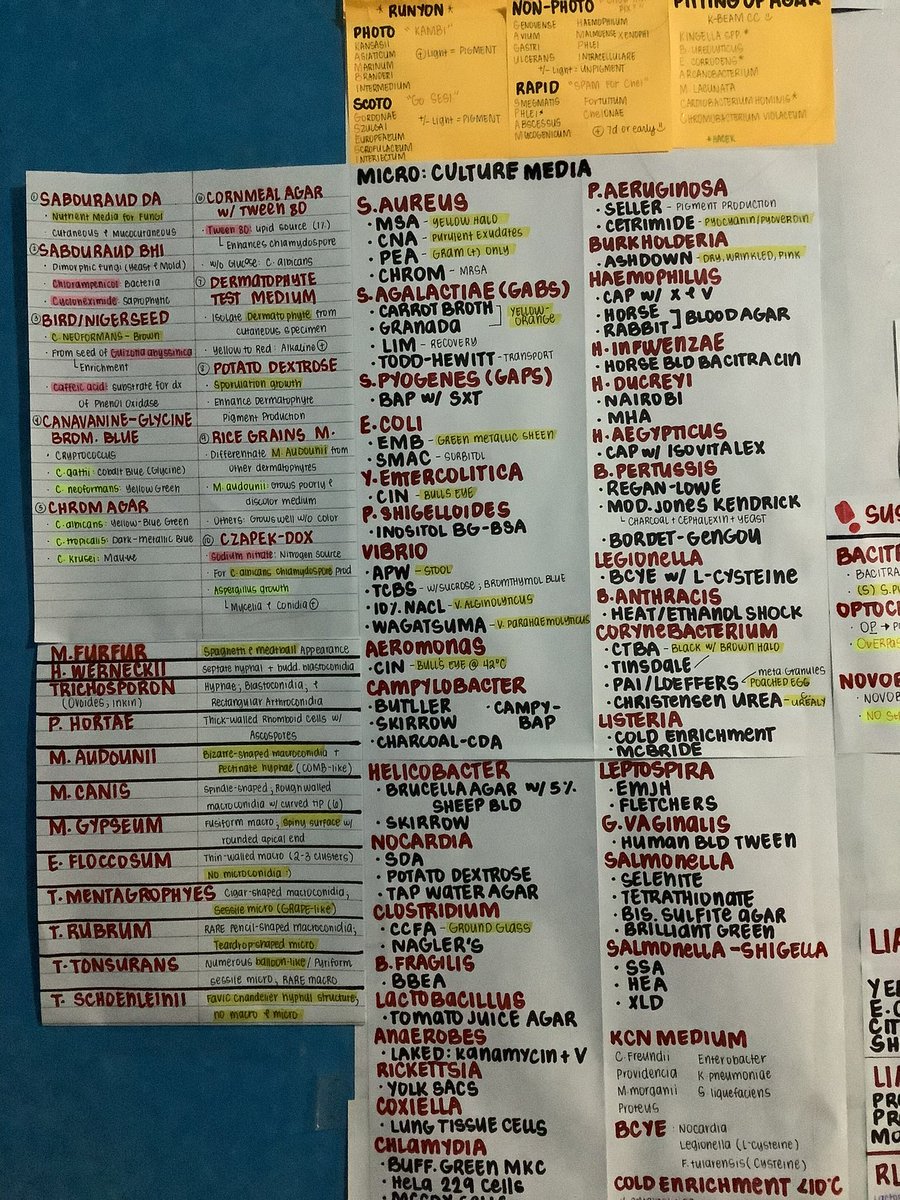 * RUNYON *
PHOTO "KAMBI"
KANSASII
ASIATICUM
MARINUM
BRANDERI
INTERMEDIUM
⊕ Light = PIGMENT
SCOTO "GO SESI"
GORDONAE
SZULGAI
EUROPAEUM
SCROFULACEUM
INTERJECTUM
+/- Light = PIGMENT
NON-PHOTO
GENOVENSE
AVIUM
GASTRI
ULCERANS
HAEMOPHILUM
MALMOENSE XENOPHI
PHLEI
INTRACELLULARE
+/- Light = UNPIGMENT
RAPID "SPAM FOR Chei"
SMEGMATIS
PHLEI*
ABSCESSUS
MUCOGENICUM
FORTUITUM
CHELONAE
⊕ 7d or early
PITTING OF AGAR
K-BEAM CC
KINGELLA SPP *
B. UREOLYTICUS
E. CORRODENS*
ARCANOBACTERIUM
M. LACUNATA
CARDIOBACTERIUM HOMINIS*
CHROMOBACTERIUM VIOLACEUM
*HACEK
① SABOURAUD DA
· Nutrient Media for Fungi
· Cutaneous & Mucocutaneous
② SABOURAUD BHI
· Dimorphic fungi (Yeast & Mold)
· Chlorampenicol: Bacteria
· Cycloneximide: Saprophytic
③ BIRD/NIGERSEED
· C. NEOFORMANS - Brown
· From seed of Guizona abyssinica
Enrichment
· Caffeic acid: substrate for dx
Of Phenol Oxidase
④ CANAVANINE-GLYCINE
BROM. BLUE
· CRYPTOCOCCUS
· C. gatti: cobalt Blue (Glycine)
· C. neoformans: Yellow Green
⑤ CHROM AGAR
· C. albicans: Yellow-Blue Green
· C. tropicalis: Dark-metallic Blue
· C. Krusei: Mauve
⑥ CORNMEAL AGAR
W/ TWEEN 80
· Tween 80: Lipid source (1%)
Enhances chlamydospore
· W/o Glucose: C. albicans
⑦ DERMATOPHYTE
TEST MEDIUM
· Isolate Dermatophyte from
cutaneous specimen
· Yellow to Red: Alkaline ⊕
⑧ POTATO DEXTROSE
· Sporulation growth
· Enhance Dermatophyte
Pigment Production
⑨ RICE GRAINS M.
· Differentiate M. Audounii from
other dermatophytes
· M. audounii: Grows poorly &
discolor medium
· Others: Grows well w/o color
⑩ CZAPEK-DOX
· Sodium nitrate: Nitrogen source
· For C. albicans Chlamydospore Prod
· Aspergillus growth
Mycelia + Conidia ⊕
M. FURFUR Spaghetti & meatball Appearance
H. WERNECKII septate hyphal + budd. blastoconidia
TRICHOSPORON Hyphae, Blastoconidia, +
(Ovoides, inkin) Rectangular Arthroconidia
P. HORTAE Thick-walled Rhomboid cells w/
Ascospores
M. AUDOUNII Bizarre-shaped macroconidia +
Pectinate hyphae (COMB-like)
M. CANIS Spindle-shaped, Rough walled
macroconidia w/ curved tip (6)
M. GYPSEUM Fusiform macro, spiny surface w/
rounded apical end
E. FLOCCOSUM Thin-walled macro (2-3 clusters)
No microconidia!
T. MENTAGROPHYES Cigar-shaped macroconidia,
Sessile micro (GRAPE-like)
T. RUBRUM RARE pencil-shaped macroconidia,
Teardrop-shaped micro
T. TONSURANS Numerous balloon-like / Pyriform
sessile micro, RARE macro
T. SCHOENLEINII Favic Chandelier hyphal structure,
no macro & micro
MICRO: CULTURE MEDIA
S. AUREUS
· MSA - YELLOW HALO
· CNA - Purulent Exudates
· PEA - GRAM (+) ONLY
· CHROM - MRSA
S. AGALACTIAE (GABS)
· CARROT BROTH
· GRANADA
YELLOW-
ORANGE
· LIM - RECOVERY
· TODD-HEWITT - TRANSPORT
S. PYOGENES (GAPS)
· BAP W/ SXT
E. COLI
· EMB - GREEN METALLIC SHEEN
· SMAC - SORBITOL
Y. ENTERCOLITICA
· CIN - BULLS EYE
P. SHIGELLOIDES
· INOSITOL BG-BSA
VIBRIO
· APW - STOOL
· TCBS - W/SUCROSE, BROMTHYMOL BLUE
· 10% NACL - V. ALGINOLYTICUS
· WAGATSUMA - V. PARAHAEMOLYTICUS
AEROMONAS
· CIN - BULLS EYE @ 42°C
CAMPYLOBACTER
· BUTLLER
· SKIRROW
· CHARCOAL-CDA
· CAMPY-
BAP
P. AERUGINOSA
· SELLER - PIGMENT PRODUCTION
· CETRIMIDE - PYOCYANIN/PYOVERDIN
BURKHOLDERIA
· ASHDOWN - DRY, WRINKLED, PINK
HAEMOPHILUS
· CAP W/ X & V
· HORSE
RABBIT ] BLOOD AGAR
H. INFLUENZAE
· HORSE BLD BACITRACIN
H. DUCREYI
· NAIROBI
· MHA
H. AEGYPTICUS
· CAP W/ ISOVITALEX
B. PERTUSSIS
· REGAN-LOWE
· MOD. JONES KENDRICK
CHARCOAL + CEPHALEXIN + YEAST
· BORDET-GENGOU
LEGIONELLA
· BCYE W/ L-CYSTEINE
B. ANTHRACIS
· HEAT/ETHANOL SHOCK
CORYNEBACTERIUM
· CTBA - BLACK W/ BROWN HALO
· TINSDALE
· PAI/LOEFFERS
meta Granules
POACHED EGG
· CHRISTENSEN UREA - UREALY
LISTERIA
· COLD ENRICHMENT
· MCBRIDE
HELICOBACTER
· BRUCELLA AGAR W/ 5%
SHEEP BLD
· SKIRROW
NOCARDIA
· SDA
· POTATO DEXTROSE
· TAP WATER AGAR
CLOSTRIDIUM
· CCFA - GROUND GLASS
· NAGLER'S
B. FRAGILIS
· BBEA
LACTOBACILLUS
· TOMATO JUICE AGAR
ANAEROBES
· LAKED: Kanamycin + V
RICKETTSIA
· YOLK SACS
COXIELLA
· LUNG TISSUE CELLS
CHLAMYDIA
· BUFF. GREEN MKC
· HeLa 229 Cells
MCCOY CELLS
LEPTOSPIRA
· EMJH
· FLETCHERS
G. VAGINALIS
· HUMAN BLD TWEEN
SALMONELLA
· SELENITE
· TETRATHIONATE
· BIS. SULFITE AGAR
· BRILLIANT GREEN
SALMONELLA-SHIGELLA
· SSA
· HEA
· XLD
KCN MEDIUM
C. Freundii
Providencia
M. morganii
Proteus
Enterobacter
K. pneumoniae
S. liquefaciens
BCYE : Nocardia
Legionella (L-cysteine)
F. tularensis (Cysteine)
COLD ENRICHMENT <10°C
SUS
BACIT
· BACITRA
· (S) S.P
OPTOC
· OP → P
OVERPAS
NOVOB
· NOVOB
NO S
LIA
YE
E.C
CIT
SH
LI
PR
PR
MO
RL